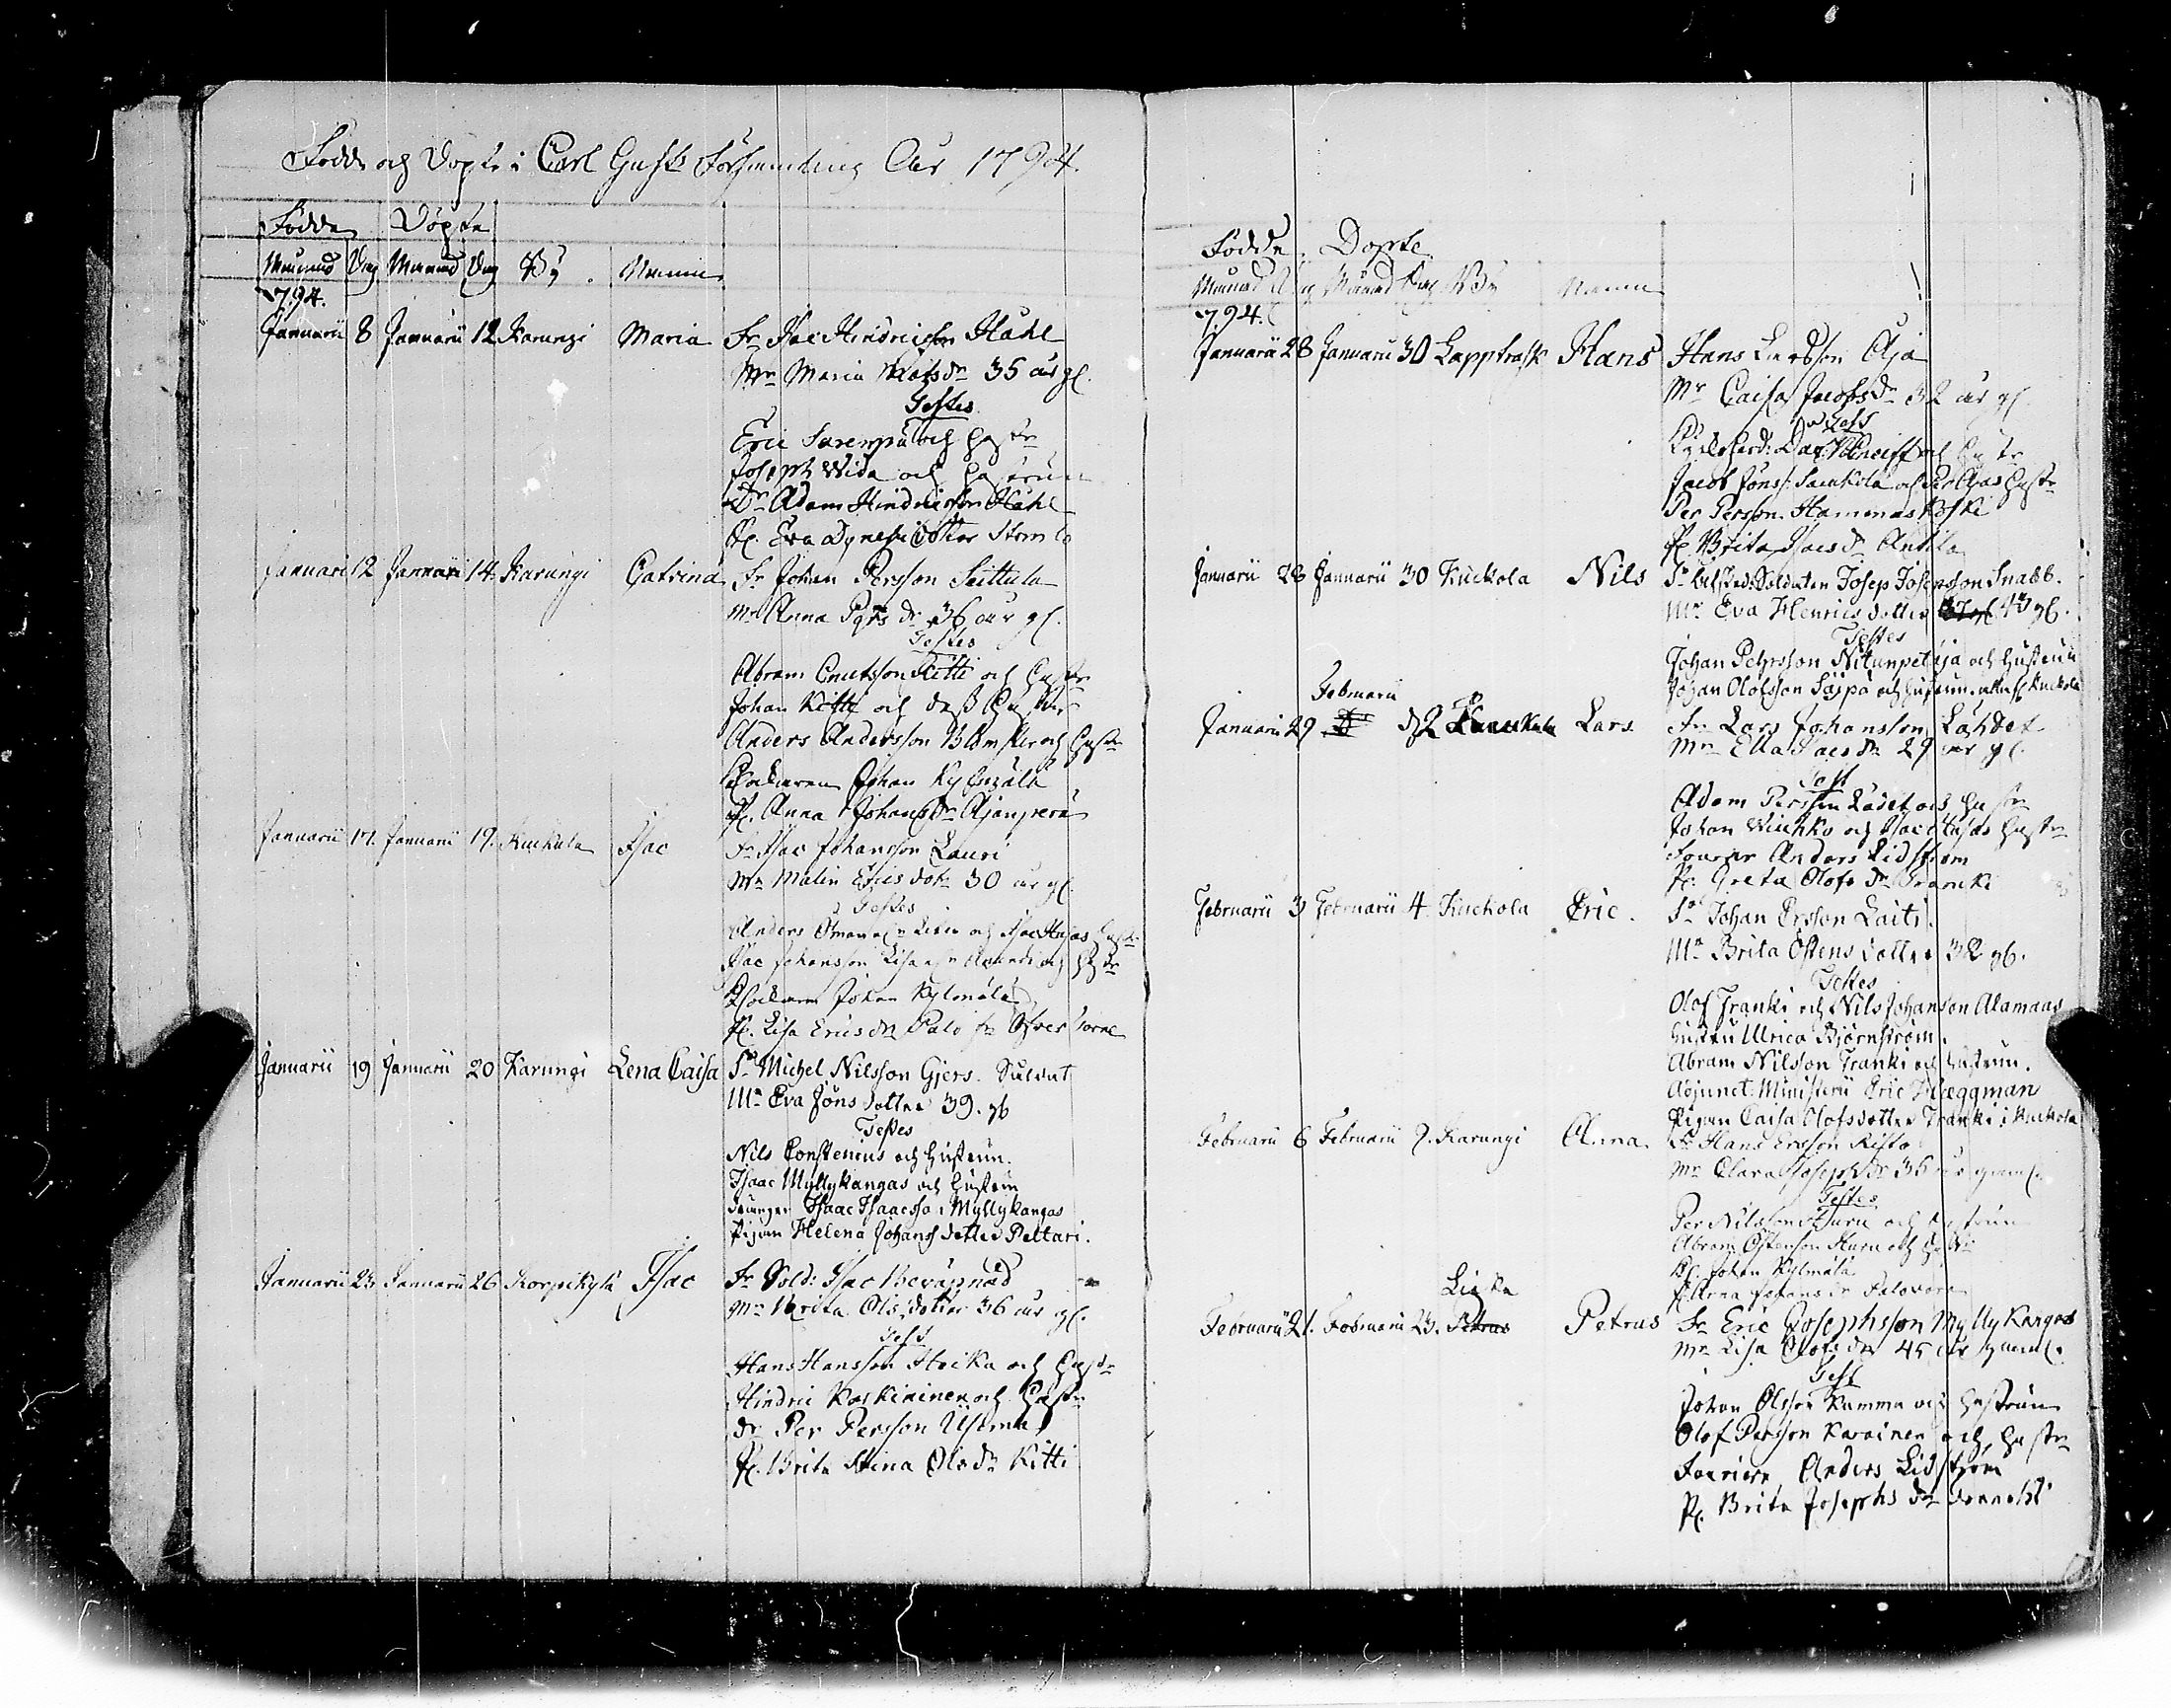 Födde och Döpte i Carl Gusts Församling Åhr 1794.
Födde Döpte
Månad Dag Månad Dag By. Namn
1794.
Januarii 8 Januarii 12 Karungi Maria Fr Isac Hindricsson Håhl
Mr Maria Olofsdr 35 år gl.
Testes
Eric Sarenpä och hustr
Joseph Wida och hustrun
Dr Adam Hindricsson Håhl
P. Eva
Januari 12 Januari 14 Karungi Catrina Fr Johan Persson Seittula
Mr Anna Pers dr 36 år gl.
Testes
Abram Cnutsson Kitti och hustr
Johan Kitti och dess hustru
Anders Andersson Blomster och hustr
Klockaren Johan Kylmälä
P. Anna Johans dr Ajanperä
Januarii 17. Januarii 19. Kuckula Isac Fr Isac Johansson Lauri
Mr Malin Ericsdotr 30 år gl.
Testes
Anders och Isac hustr
Isac Johansson och hustr
Klockaren Johan Kylmälä
P. Lisa Erics dr Palo fr Öfver Torne
Januarii 19 Januarii 20 Karungi Lena Caisa Fr Michel Nilsson Gjers. Soldat
Mr Eva Jöns dotter 39. gl
Testes
Nils Constenius och hustrun.
Isaac Myllykangas och hustrun
Drängen Isaac Isaacsso i Myllykangas
Pigan Helena Johans dotter Pettari.
Januarii 23 Januarii 26 Korpikylä Isac Fr Sold: Isac Beväpnad
Mr Brita Ols dotter 36 år gl.
Test
Hans Hansson Hoika och hustr
Hindric Koskininen och hustr
dr Per Persson
P. Brita Stina Olsdr Kitti
Födde. Döpte.
Månad Dag Månad Dag By Namn
1794.
Januarii 28 Januarii 30 Lappträsk Hans Hans Larsson Aja
Mr Caisa Jacobsdr 32 år gl.
Test
och hustr
Jacob Jönss: och Per Ajas hustr
Per Person Hammaskoski
P. Brita Isacs dr Antila
Januarii 28 Januarii 30 Kuckola Nils Fr Soldaten Josep Josepsson Snabb.
Mr Eva Henrics dotter 43 gl.
Testes
Johan Pehrsson Niemenpetäjä och hustrun
Johan Olofsson Säippä och hustrun Kuckola
Februarii
Januarii 29 d 2 Kuckula Lars Fr Lars Johansson Lähdet
Mr Ella Isacs dr 29 år gl.
Test
Adam Persson Lädet och hustr
Johan Wiuhko och Isac hustr
Fourier Anders Lidström
P. Greta Olofs dr Franki
Februarii 3 Februarii 4 Kuckola Eric. Fr Johan Ersson Laiti.
Mr Brita Östens dotter 32 gl.
Testes
Olof Franki och Nils Johanson Alamaas
hustru Ulrica Björnström.
Abram Nilsson Franki och hustrun.
Adjunct: Ministerii Eric Heggman
Pigan Caisa Olofsdotter Franki i Kuckola
Februarii 6 Februarii 9. Karungi Anna. Fr Hans Ersson Risto
Mr Clara Joseph dr 36 år gammal
Testes
Per Nilsson Kuru och hustrun
Abram Östenson Kuru och hustr
Kl. Johan Kylmälä
P. Anna Johans dr Palovara
Liaka
Februarii 21. Februarii 23. Petrus Petrus Fr Eric Josephsson Myllykangas
Mr Lisa Olofs dr 45 år gammal.
Test
Johan Olsson Kamma och hustrun
Olof Persson Karainen och hustr
Fouriern Anders Lidström
P. Brita Josephs dr